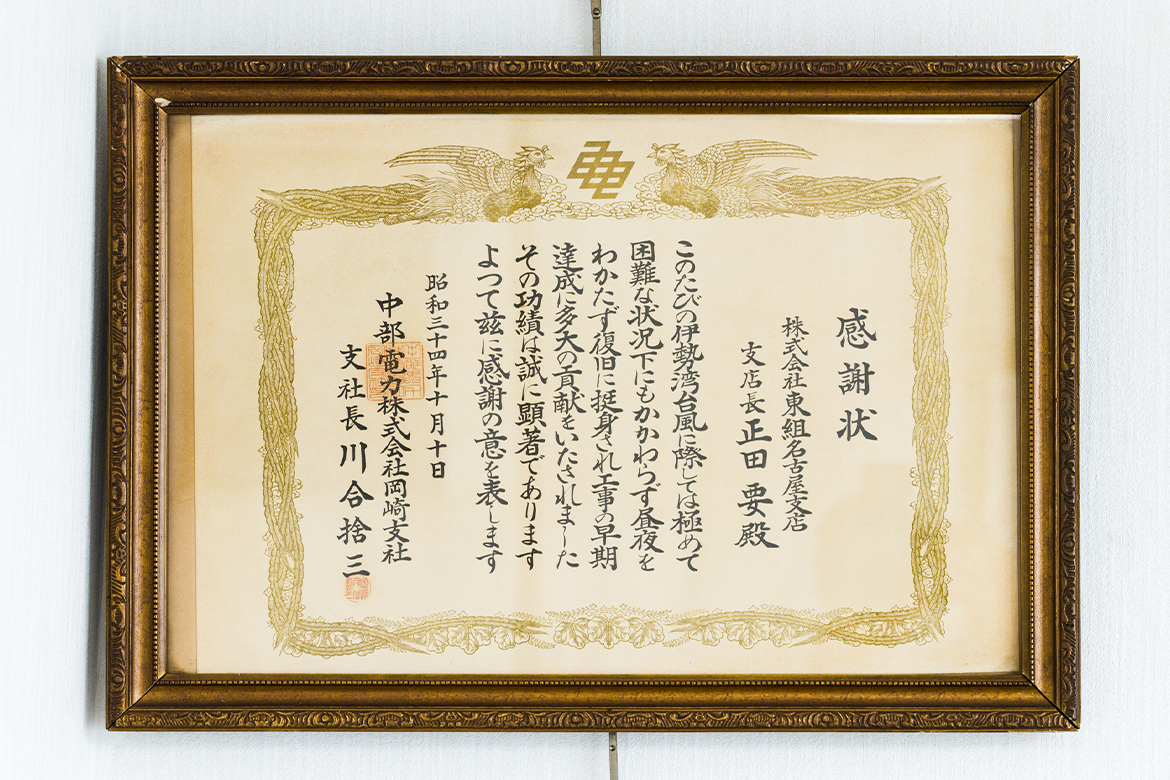 感謝状
株式会社東組名古屋支店
支店長 正田 要殿
このたびの伊勢湾台風に際しては極めて
困難な状況下にもかかわらず昼夜を
わかたず復旧に挺身され工事の早期
達成に多大の貢献をいたされました
その功績は誠に顕著であります
よつて茲に感謝の意を表します
昭和三十四年十月十日
中部電力株式会社岡崎支社
支社長 川合捨三